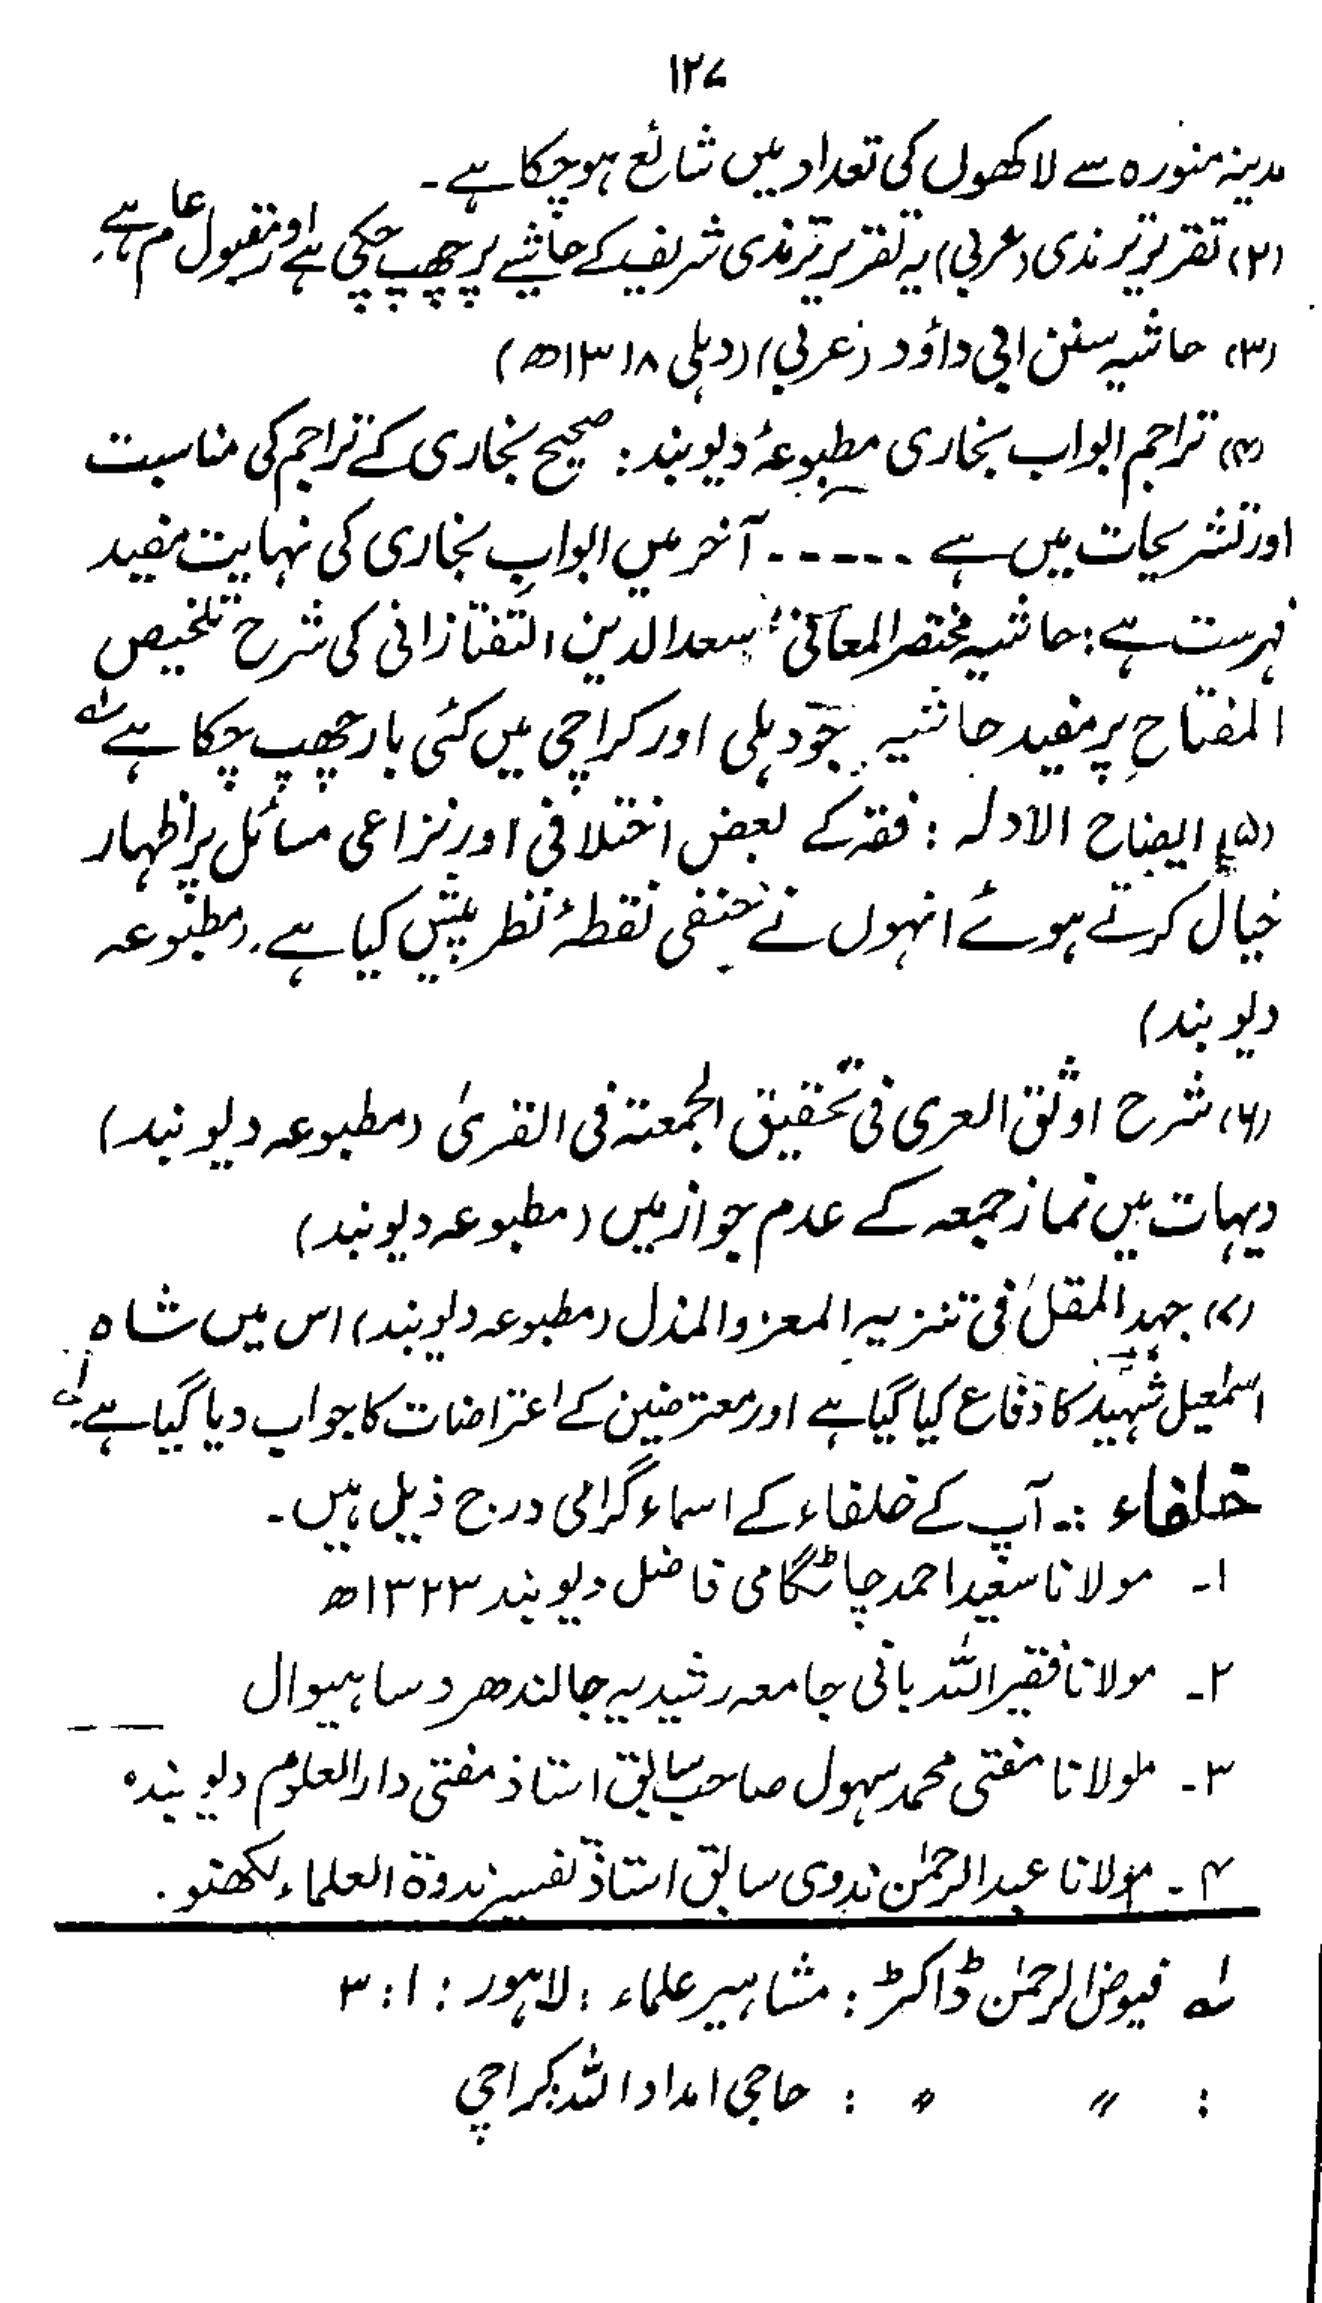 ۱۲۷
مدینہ منورہ سے لاکھوں کی تعداد میں شائع ہو چکا ہے۔
(۲) تقریر ترمذی (عربی) یہ تقریر ترمذی شریف کے حاشیے پر چھپ چکی ہے اور مقبول عام ہے۔
(۳) حاشیہ سنن ابی داؤد (عربی) (دہلی ۱۳۱۸ھ)
(۴) تراجم ابواب بخاری مطبوعۂ دیوبند: صحیح بخاری کے تراجم کی مناسبت
اور تشریحات میں ہے ۔۔۔۔۔ آخر میں ابوابِ بخاری کی نہایت مفید
فہرست ہے: حاشیہ مختصر المعانی سعد الدین التفتازانی کی شرح تلخیص
المفتاح پر مفید حاشیہ جو دہلی اور کراچی میں کئی بار چھپ چکا ہے ؂۱
(۵) ایضاح الادلہ : فقہ کے بعض اختلافی اور نزاعی مسائل پر اظہار
خیال کرتے ہوئے انہوں نے حنفی نقطۂ نظر پیش کیا ہے۔ (مطبوعہ
دیوبند)
(۶) شرح اوثق العری فی تحقیق الجمعتہ فی القریٰ (مطبوعہ دیوبند)
دیہات میں نماز جمعہ کے عدم جواز میں (مطبوعہ دیوبند)
(۷) جہد المقل فی تنزیہ المعز والمذل (مطبوعہ دیوبند) اس میں شاہ
اسمٰعیل شہیدؒ کا دفاع کیا گیا ہے اور معترضین کے اعتراضات کا جواب دیا گیا ہے۔؂۱
خلفاء :۔ آپ کے خلفاء کے اسماء گرامی درج ذیل ہیں۔
۱۔ مولانا سعید احمد چاٹگامی فاضل دیوبند ۱۳۲۳ھ
۲۔ مولانا فقیر اللہ بانی جامعہ رشیدیہ جالندھر و ساہیوال
۳۔ مولانا مفتی محمد سہول صاحب سابق استاذ مفتی دارالعلوم دیوبند
۴۔ مولانا عبدالرحمٰن ندوی سابق استاذ تفسیر ندوۃ العلماء لکھنو۔
؂۱ فیوض الرحمٰن ڈاکٹر : مشاہیر علماء : لاہور : ۱ : ۳
: 〃 〃 : حاجی امداد اللہ کراچی